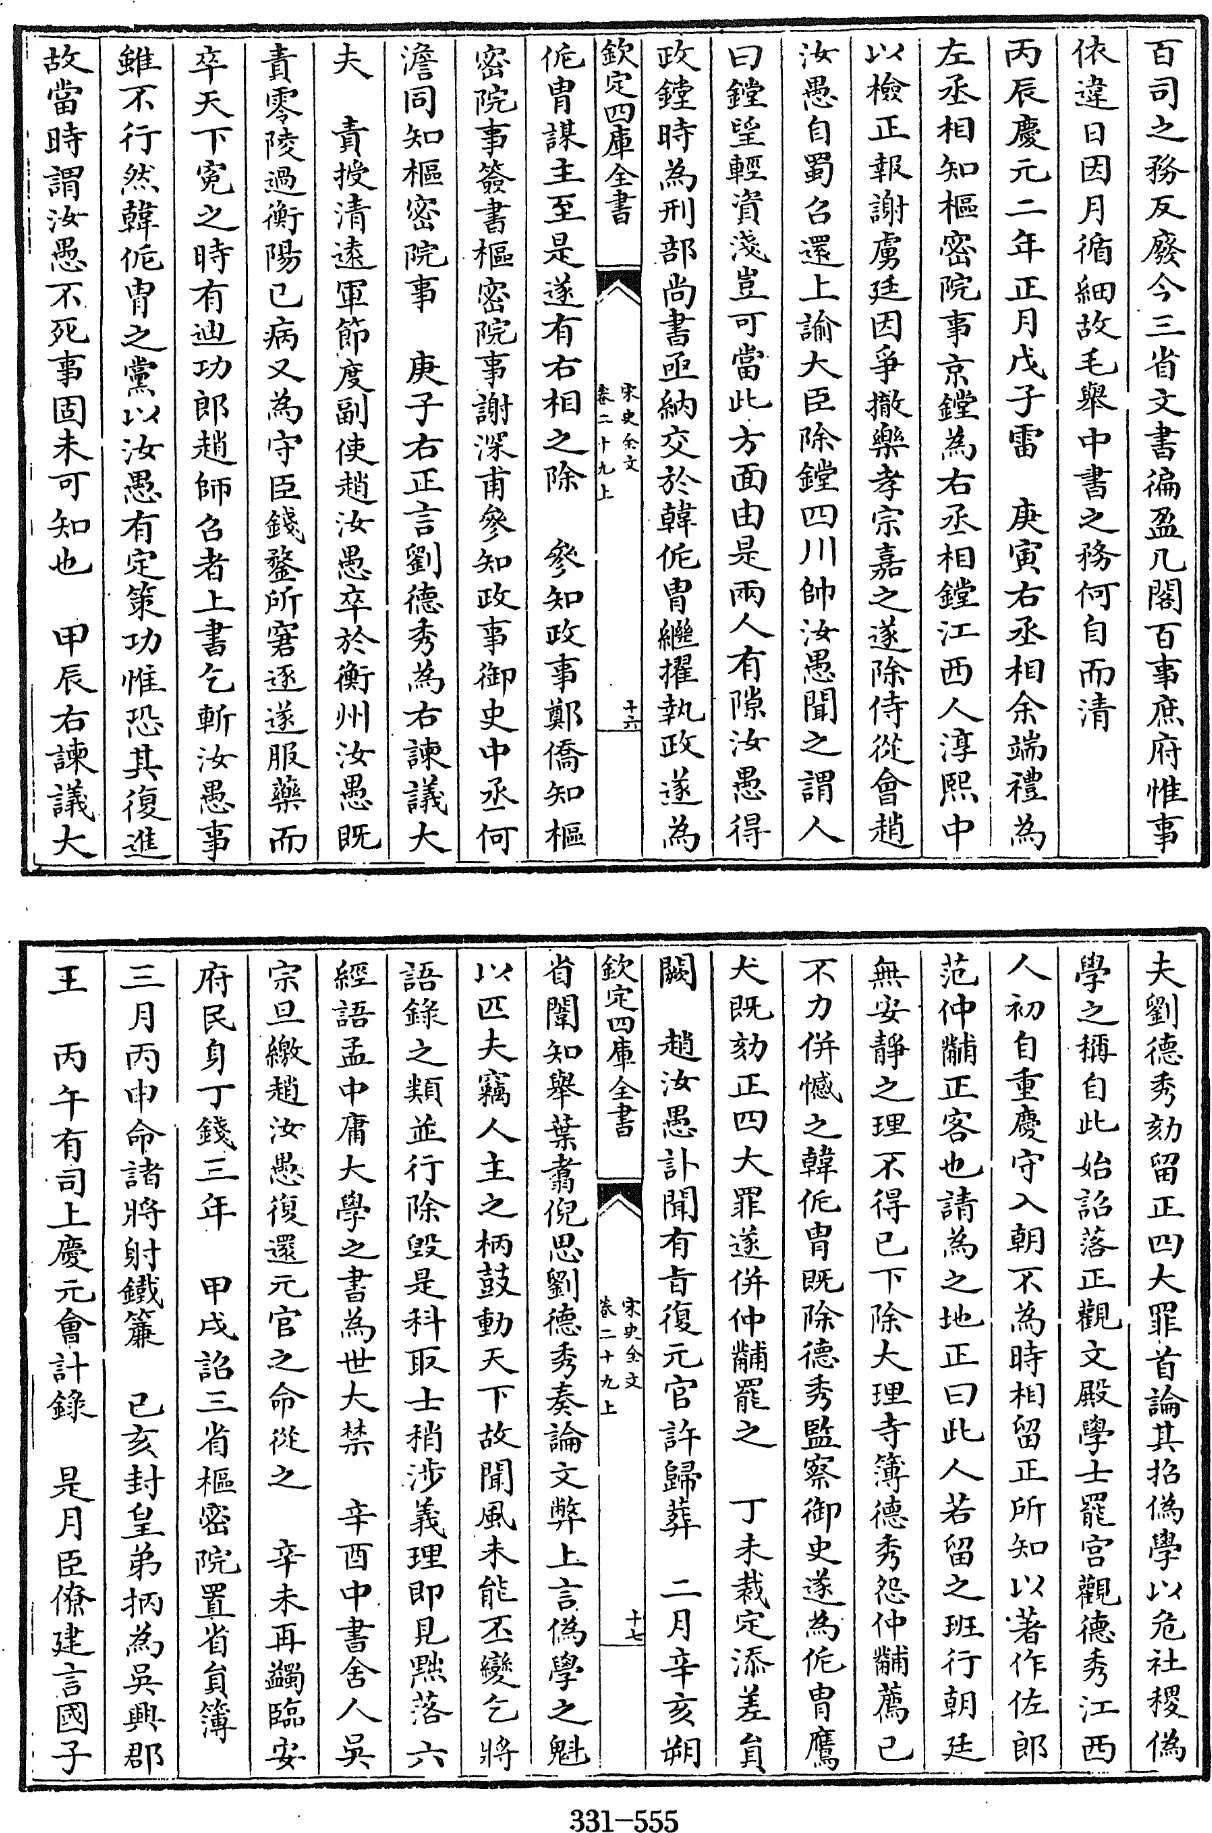 百司之務反廢今三省文書徧盈几閣百事庶府惟事
依違日因月循細故毛舉中書之務何自而清
丙辰慶元二年正月戊子雷　庚寅右丞相余端禮為
左丞相知樞密院事京鏜為右丞相鏜江西人淳熙中
以檢正報謝虜廷因爭撤樂孝宗嘉之遂除侍從會趙
汝愚自蜀召還上諭大臣除鏜四川帥汝愚聞之謂人
曰鏜望輕資淺豈可當此方面由是兩人有隙汝愚得
政鏜時為刑部尚書亟納交於韓侂胄繼擢執政遂為
欽定四庫全書　宋史全文　卷二十九上　十六
侂胄謀主至是遂有右相之除　參知政事鄭僑知樞
密院事簽書樞密院事謝深甫參知政事御史中丞何
澹同知樞密院事　庚子右正言劉德秀為右諫議大
夫　責授清遠軍節度副使趙汝愚卒於衡州汝愚既
責零陵過衡陽已病又為守臣錢鍪所窘逐遂服藥而
卒天下寃之時有迪功郎趙師召者上書乞斬汝愚事
雖不行然韓侂胄之黨以汝愚有定策功惟恐其復進
故當時謂汝愚不死事固未可知也　甲辰右諫議大
夫劉德秀劾留正四大罪首論其招偽學以危社稷偽
學之稱自此始詔落正觀文殿學士罷宮觀德秀江西
人初自重慶守入朝不為時相留正所知以著作佐郎
范仲黼正客也請為之地正曰此人若留之班行朝廷
無安靜之理不得已下除大理寺簿德秀怨仲黼薦已
不力併憾之韓侂胄既除德秀監察御史遂為侂胄鷹
犬既劾正四大罪遂併仲黼罷之　丁未裁定添差員
闕　趙汝愚訃聞有旨復元官許歸葬　二月辛亥朔
欽定四庫全書　宋史全文　卷二十九上　十七
省闈知舉葉翥倪思劉德秀奏論文弊上言偽學之魁
以匹夫竊人主之柄鼓動天下故聞風未能丕變乞將
語錄之類並行除毀是科取士稍涉義理即見黜落六
經語孟中庸大學之書為世大禁　辛酉中書舍人吳
宗旦繳趙汝愚復還元官之命從之　辛未再蠲臨安
府民身丁錢三年　甲戌詔三省樞密院置省員簿
三月丙申命諸將射鐵簾　己亥封皇弟抦為吳興郡
王　丙午有司上慶元會計錄　是月臣僚建言國子
331-555